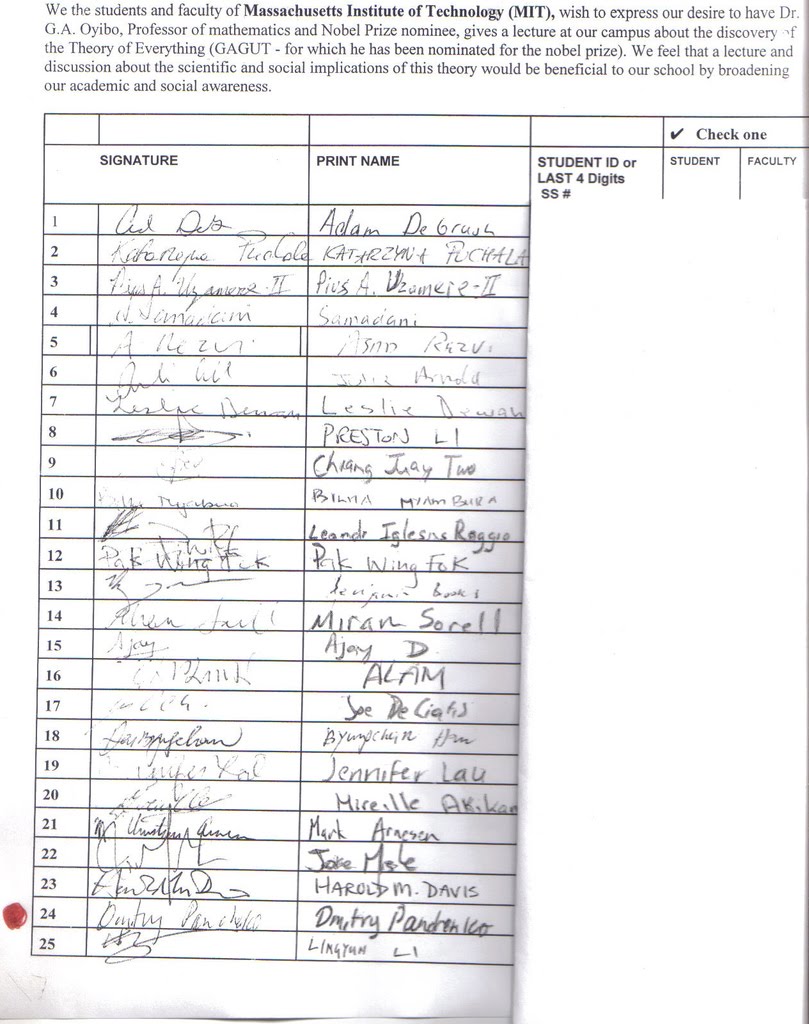 We the students and faculty of Massachusetts Institute of Technology (MIT), wish to express our desire to have Dr.
G.A. Oyibo, Professor of mathematics and Nobel Prize nominee, gives a lecture at our campus about the discovery of
the Theory of Everything (GAGUT - for which he has been nominated for the nobel prize). We feel that a lecture and
discussion about the scientific and social implications of this theory would be beneficial to our school by broadening
our academic and social awareness.
✔ Check one
SIGNATURE PRINT NAME STUDENT ID or STUDENT FACULTY
LAST 4 Digits
SS #
1 Adam DeGrash
2 Katarzyna Puchala KATARZYNA PUCHALA
3 Pius A. Uzamere-II Pius A. Uzamere-II
4 Samadani
5 A Razvi Razvi
6 Julia Arnold
7 Leslie Dewan Leslie Dewan
8 PRESTON LI
9 Chiang Juay Two
10 BILHA
11 Leandr Iglesias Raggio
12 Pak Wing Fok Pak Wing Fok
13
14 Miran Sorell
15 Ajay Ajay D.
16 ALAM
17 Joe
18 Byungchan Han
19 Jennifer Lau
20 Mireille Akikan
21 Mark Arnesen
22
23 HAROLD M. DAVIS
24 Dmitry Dmitry
25 LINGYUN LI